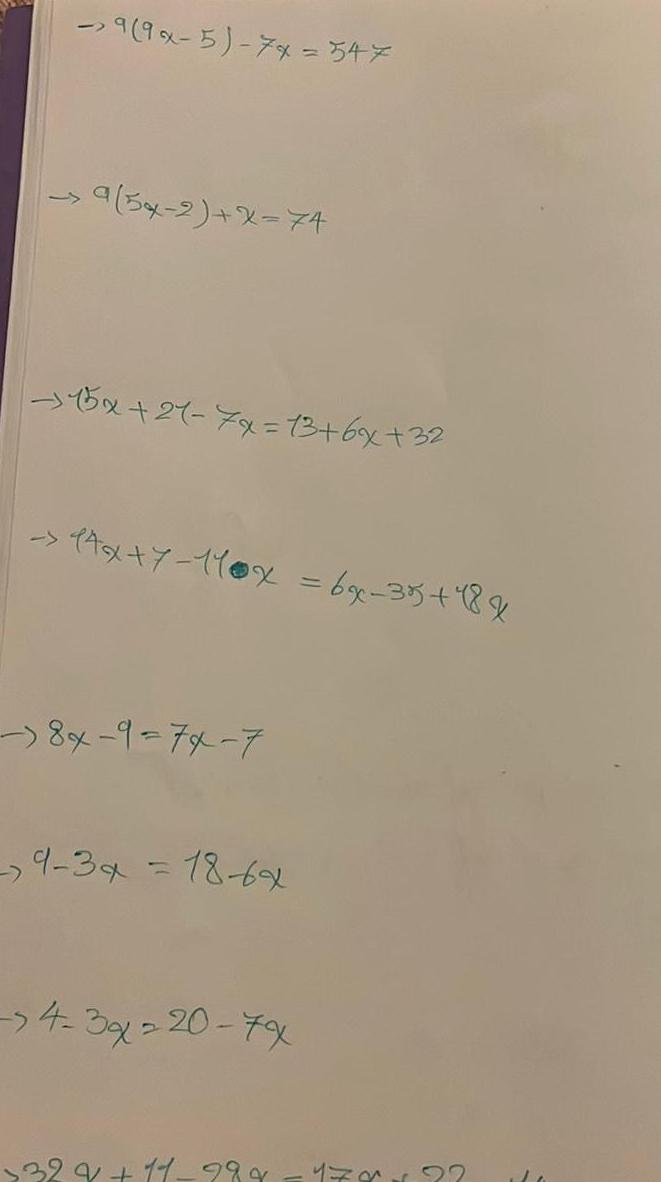 → 9(9x-5)-7x=547
→ 9(5x-2)+x=74
→ 15x+21-7x=13+6x+32
→ 14x+7-11x =6x-35+18x
→ 8x-9=7x-7
→ 9-3x = 18-6x
→ 4-3x=20-7x